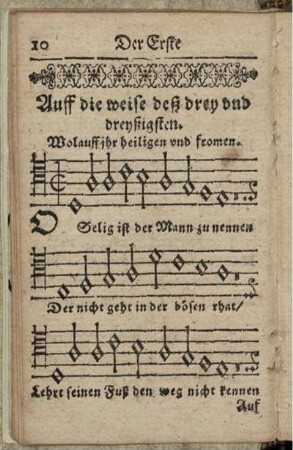 10 Der Erste
Auff die weise deß drey vnd
dreyßigsten.
Wolauff jhr heiligen vnd fromen.
O Selig ist der Mann zu nennen
Der nicht geht in der bösen rhat/
Lehrt seinen Fuß den weg nicht kennen
Auf